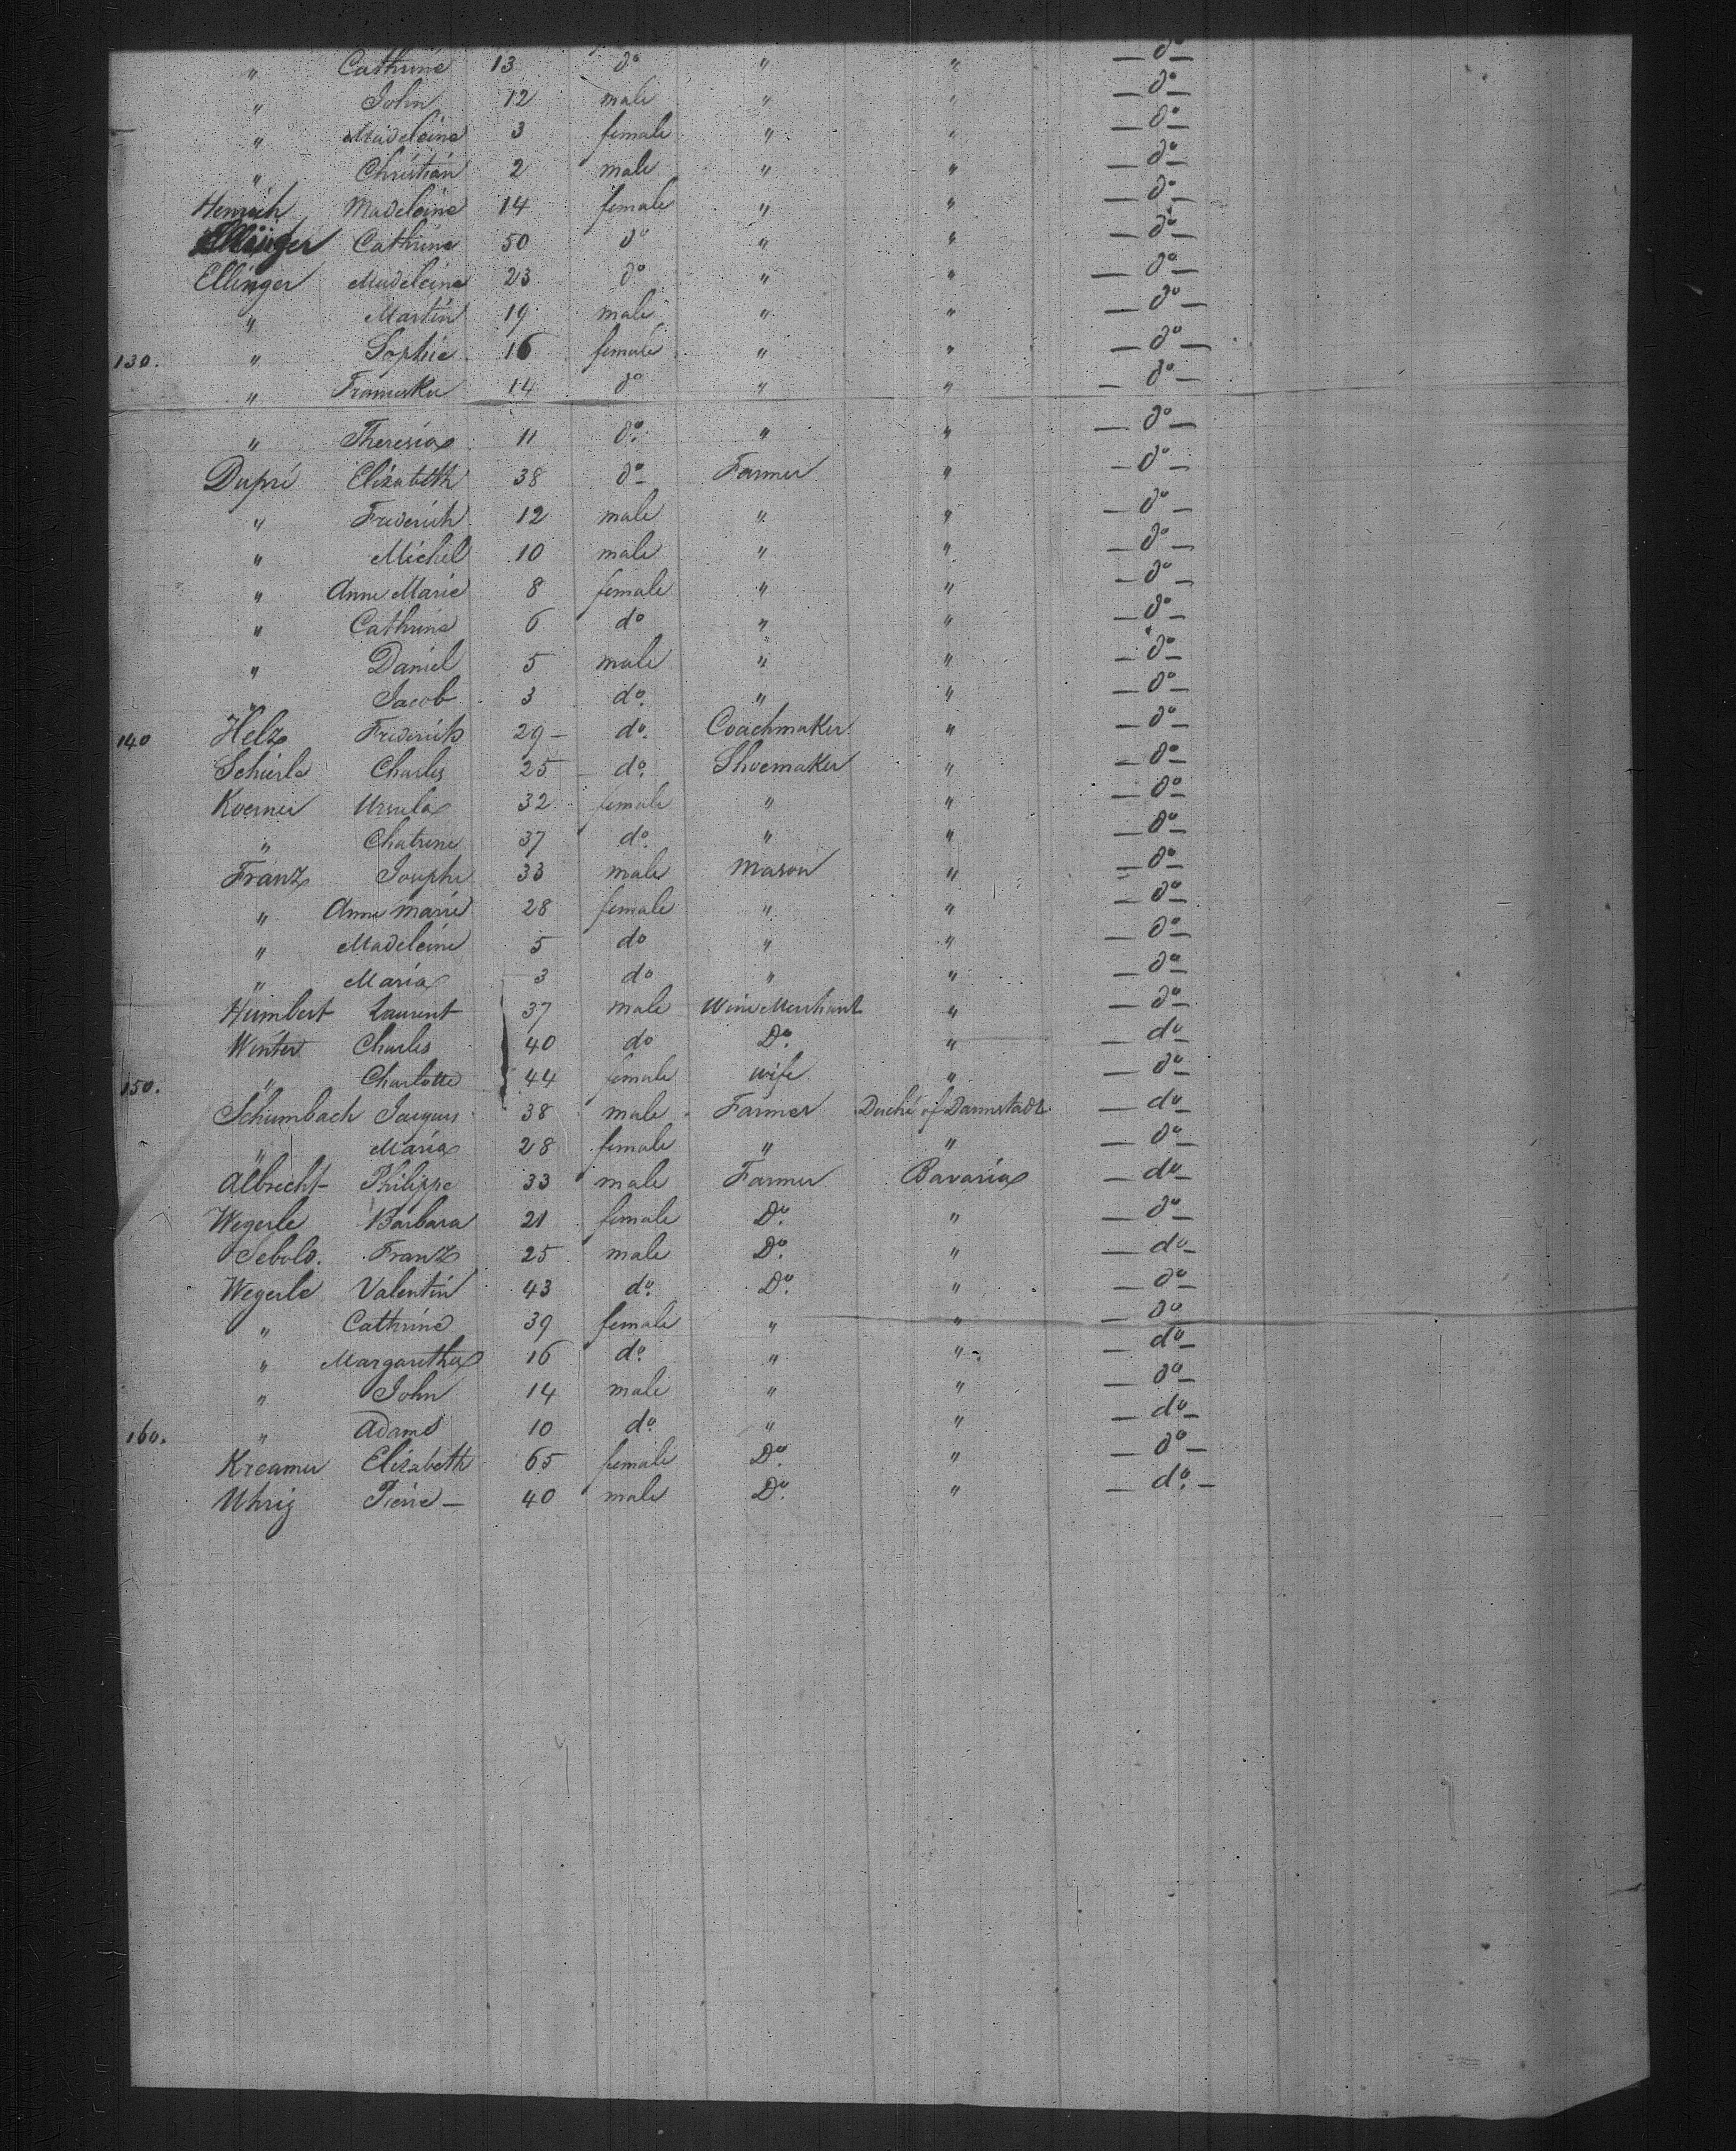 " Cathrine 13 do " " — do —
" John 12 male " " — do —
" Madeleine 3 female " " — do —
" Christian 2 male " " — do —
Henrich Madeleine 14 female " " — do —
Ellinger Cathrine 50 do " " — do —
Ellinger Madeleine 23 do " " — do —
" Martin 19 male " " — do —
130. " Sophie 16 female " " — do —
" Franciska 14 do " " — do —
" Theresia 11 do. " " — do —
Dupré Elizabeth 38 do — Farmer " — do —
" Frederich 12 male " " — do —
" Michel 10 male " " — do —
" Anne Marie 8 female " " — do —
" Cathrine 6 do " " — do —
" Daniel 5 male " " — do —
" Jacob 3 do. " " — do —
140 Helz Frederich 29 — do. Coachmaker " — do —
Schierle Charles 25 — do. Shoemaker " — do —
Koerner Ursula 32 female " " — do —
" Chatrine 37 do. " " — do —
Franz Josephe 33 male Mason " — do —
" Anne Marie 28 female " " — do —
" Madeleine 5 do " " — do —
" Maria 3 do " " — do —
Humbert Laurent 37 male Wine Merchant " — do —
Winter Charles 40 do Do. " — do —
150. " Charlotte 44 female wife " — do —
Schumbach Jacques 38 male Farmer Duché of Darmstadt — do —
" Maria 28 female " " — do —
Albrecht Philippe 33 male Farmer Bavaria — do —
Wegerle Barbara 21 female Do. " — do —
Sebold. Franz 25 male Do. " — do —
Wegerle Valentin 43 do. Do. " — do —
" Cathrine 39 female " " — do —
" Margaretha 16 do. " " — do —
" John 14 male " " — do —
160. " Adams 10 do. " " — do —
Kreamer Elizabeth 65 female Do. " — do —
Uhrig Pierre — 40 male Do. " — do. —